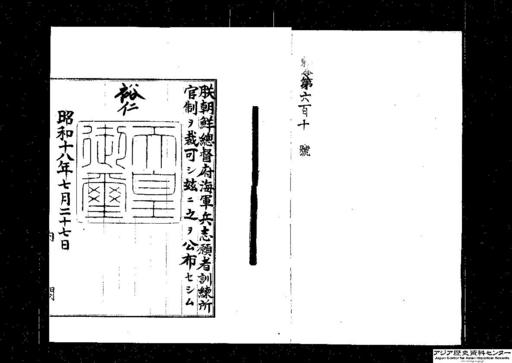 第六百十號
朕朝鮮總督府海軍兵志願者訓練所
官制ヲ裁可シ玆ニ之ヲ公布セシム
裕仁
天皇
御璽
昭和十八年七月二十七日
内閣
アジア歴史資料センター
Japan Center for Asian Historical Records